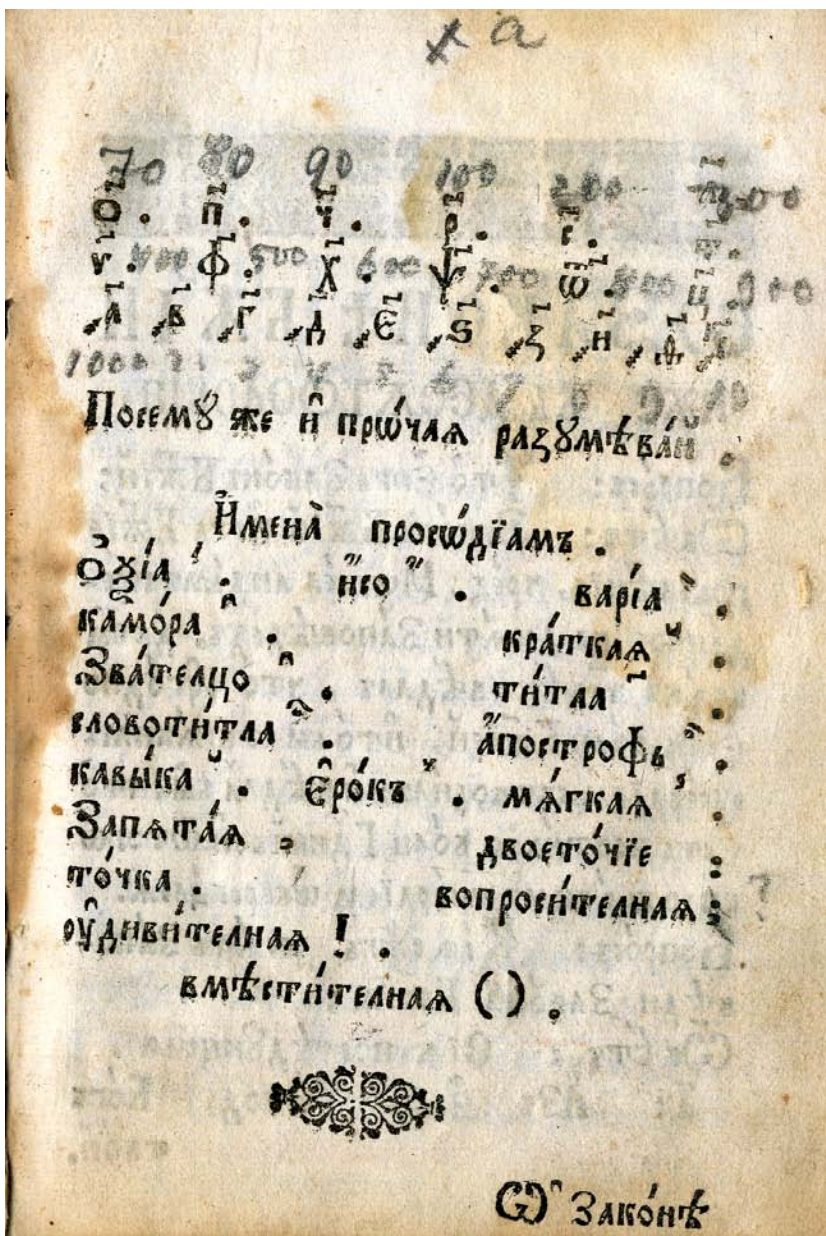 х а
70 80 90 100 200 300
о҃. п҃. ч҃. р҃. с҃. т҃.
ѵ҃. 400 ф҃. 500 х҃. 600 ѱ҃. 700 ѿ҃. 800 ц҃ 900
҂а҃ ҂в҃ ҂г҃ ҂д҃ ҂є҃ ҂ѕ҃ ҂з҃ ҂и҃ ҂ѳ҃ ҂і҃
1000 2 3 4 5 6 7 8 9 10
Посемꙋ̀ же и҆ прѡ́чаѧ разꙋмѣва́й .
И҆мена̀ просѡдїамъ .
Ѻ҆ѯі́а ́ . и҆́со ҆́ . варі́а ̀ .
камо́ра ̑ . кра́ткаѧ ̆ .
Зва́телцо ҆ . ти́тла ҃ .
словоти́тла ⷭ҇ . а҆́построфъ ҆̀ .
кавы́ка ꙼ . Є҆ро́къ ꙽ . мѧ́гкаѧ ’ .
Запѧта́ѧ , двоето́чїе :
то́чка . вопроси́телнаѧ ; ?
ᲂу҆диви́телнаѧ ! .
вмѣсти́телнаѧ ( ) .
Ѡ҆ Зако́нѣ